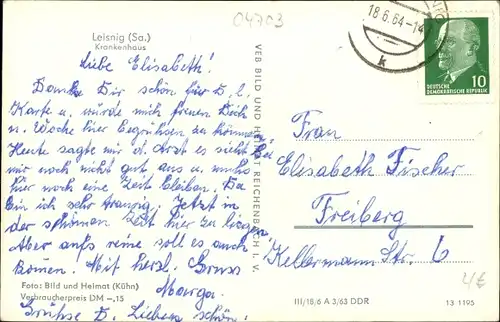 04703
Leisnig (Sa.)
Krankenhaus
Liebe Elisabeth!
Danke Dir schön für D. l.
Karte u. würde mich freuen Dich
n. Woche hier begrüßen zu können.
Heute sagte mir d. Arzt es sieht bei
mir noch nicht gut aus u. muß
hier noch eine Zeit bleiben. Da
bin ich sehr traurig. Jetzt in
der schönen Zeit hier zu liegen.
Aber aufs reine soll es auch
kommen. Mit herzl. Gruss
Marga.
Grüße D. Lieben schön.
Foto: Bild und Heimat (Kühn)
Verbraucherpreis DM -,15
VEB BILD UND HEIMAT REICHENBACH I. V.
18.6.64-14
k
10
DEUTSCHE
DEMOKRATISCHE REPUBLIK
Frau
Elisabeth Fischer
Freiberg
Kellermann Str. 6
4€
III/18/6 A 3/63 DDR
13 1195